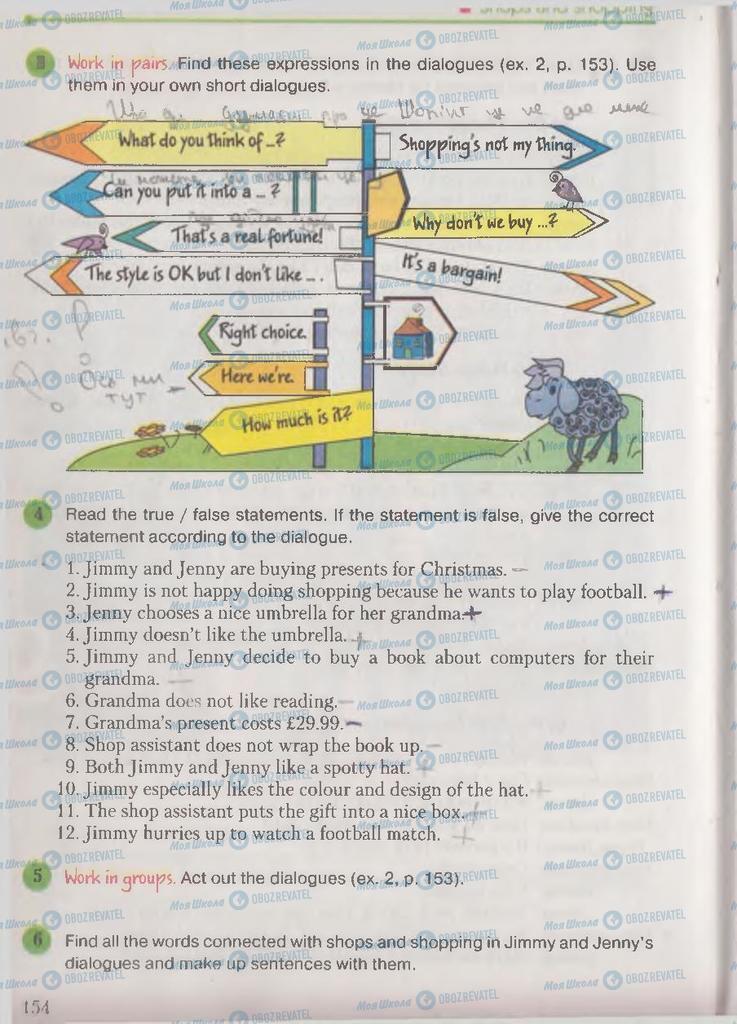 Shops and shopping
3 Work in pairs. Find these expressions in the dialogues (ex. 2, p. 153). Use
them in your own short dialogues.
What do you think of ...?
Shopping's not my thing.
Can you put it into a ... ?
Why don't we buy ...?
That's a real fortune!
The style is OK but I don't like ... .
It's a bargain!
Right choice.
Here we're.
Ось ми
тут
How much is it?
4 Read the true / false statements. If the statement is false, give the correct
statement according to the dialogue.
1. Jimmy and Jenny are buying presents for Christmas. –
2. Jimmy is not happy doing shopping because he wants to play football. +
3. Jenny chooses a nice umbrella for her grandma. +
4. Jimmy doesn't like the umbrella. +
5. Jimmy and Jenny decide to buy a book about computers for their
grandma. –
6. Grandma does not like reading. –
7. Grandma's present costs £29.99. –
8. Shop assistant does not wrap the book up. –
9. Both Jimmy and Jenny like a spotty hat. +
10. Jimmy especially likes the colour and design of the hat. +
11. The shop assistant puts the gift into a nice box. +
12. Jimmy hurries up to watch a football match. +
5 Work in groups. Act out the dialogues (ex. 2, p. 153).
6 Find all the words connected with shops and shopping in Jimmy and Jenny's
dialogues and make up sentences with them.
154
Моя Школа OBOZREVATEL